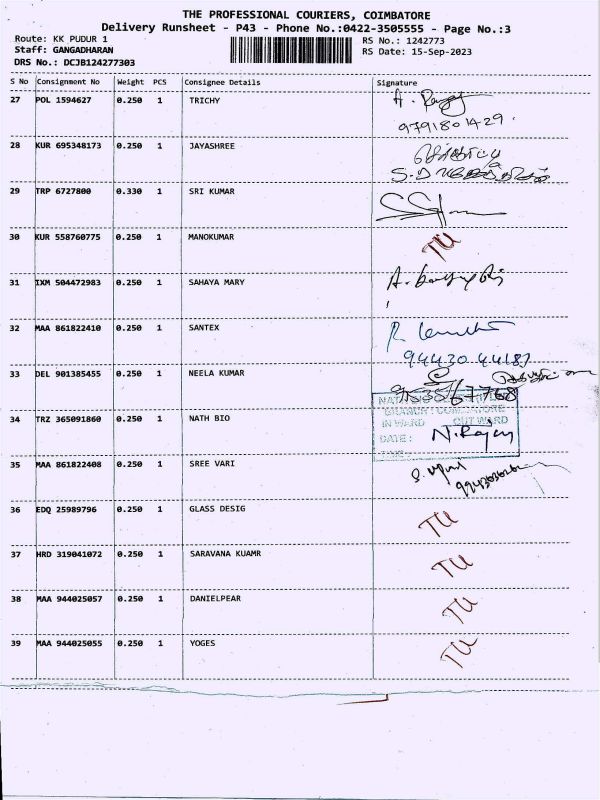 THE PROFESSIONAL COURIERS, COIMBATORE
Delivery Runsheet - P43 - Phone No.:0422-3505555 - Page No.:3
Route: KK PUDUR 1 RS No.: 1242773
Staff: GANGADHARAN RS Date: 15-Sep-2023
DRS No.: DCJB124277303
S No Consignment No Weight PCS Consignee Details Signature
27 POL 1594627 0.250 1 TRICHY
9791801429.
28 KUR 695348173 0.250 1 JAYASHREE
29 TRP 6727800 0.330 1 SRI KUMAR
30 KUR 558760775 0.250 1 MANOKUMAR TU
31 IXM 504472983 0.250 1 SAHAYA MARY
32 MAA 861822410 0.250 1 SANTEX
94430 44187
33 DEL 901385455 0.250 1 NEELA KUMAR
34 TRZ 365091860 0.250 1 NATH BIO
IN WARD OUT WARD
DATE: N.Rajan
35 MAA 861822408 0.250 1 SREE VARI
36 EDQ 25989796 0.250 1 GLASS DESIG TU
37 HRD 319041072 0.250 1 SARAVANA KUAMR TU
38 MAA 944025057 0.250 1 DANIELPEAR TU
39 MAA 944025055 0.250 1 YOGES TU